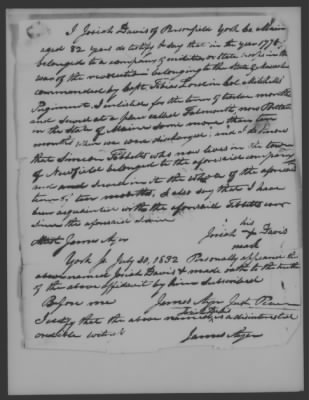 I Josiah Davis of Parsonsfield York Co Maine
aged 82 years do testify & say that in the year 1776, I
belonged to a company of soldiers or State troops in the
war of the revolution belonging to the State of
commanded by Capt. Tobias Lord in Col. Mitchells
Regiment. I enlisted for the term of twelve months
and served at a place called Falmouth, now Portland
in the State of Maine some more than ten
months when we were discharged, and I do
that Simeon Tibbetts who now lives in the town
of Newfield belonged to the aforesaid company
and served in it the whole of the aforesaid
term of ten months, I also say that I have
been acquainted with the aforesaid Tibbetts ever
since the aforesaid
his
Attest James Ayer Josiah x Davis
mark
York ss July 30, 1832 Personally appeared the
above named Josiah Davis & made oath to the truth
of the above affidavit by him subscribed
Before me James Ayer Just. Peace
I certify that the above named is a disinterested
credible witness
James Ayer